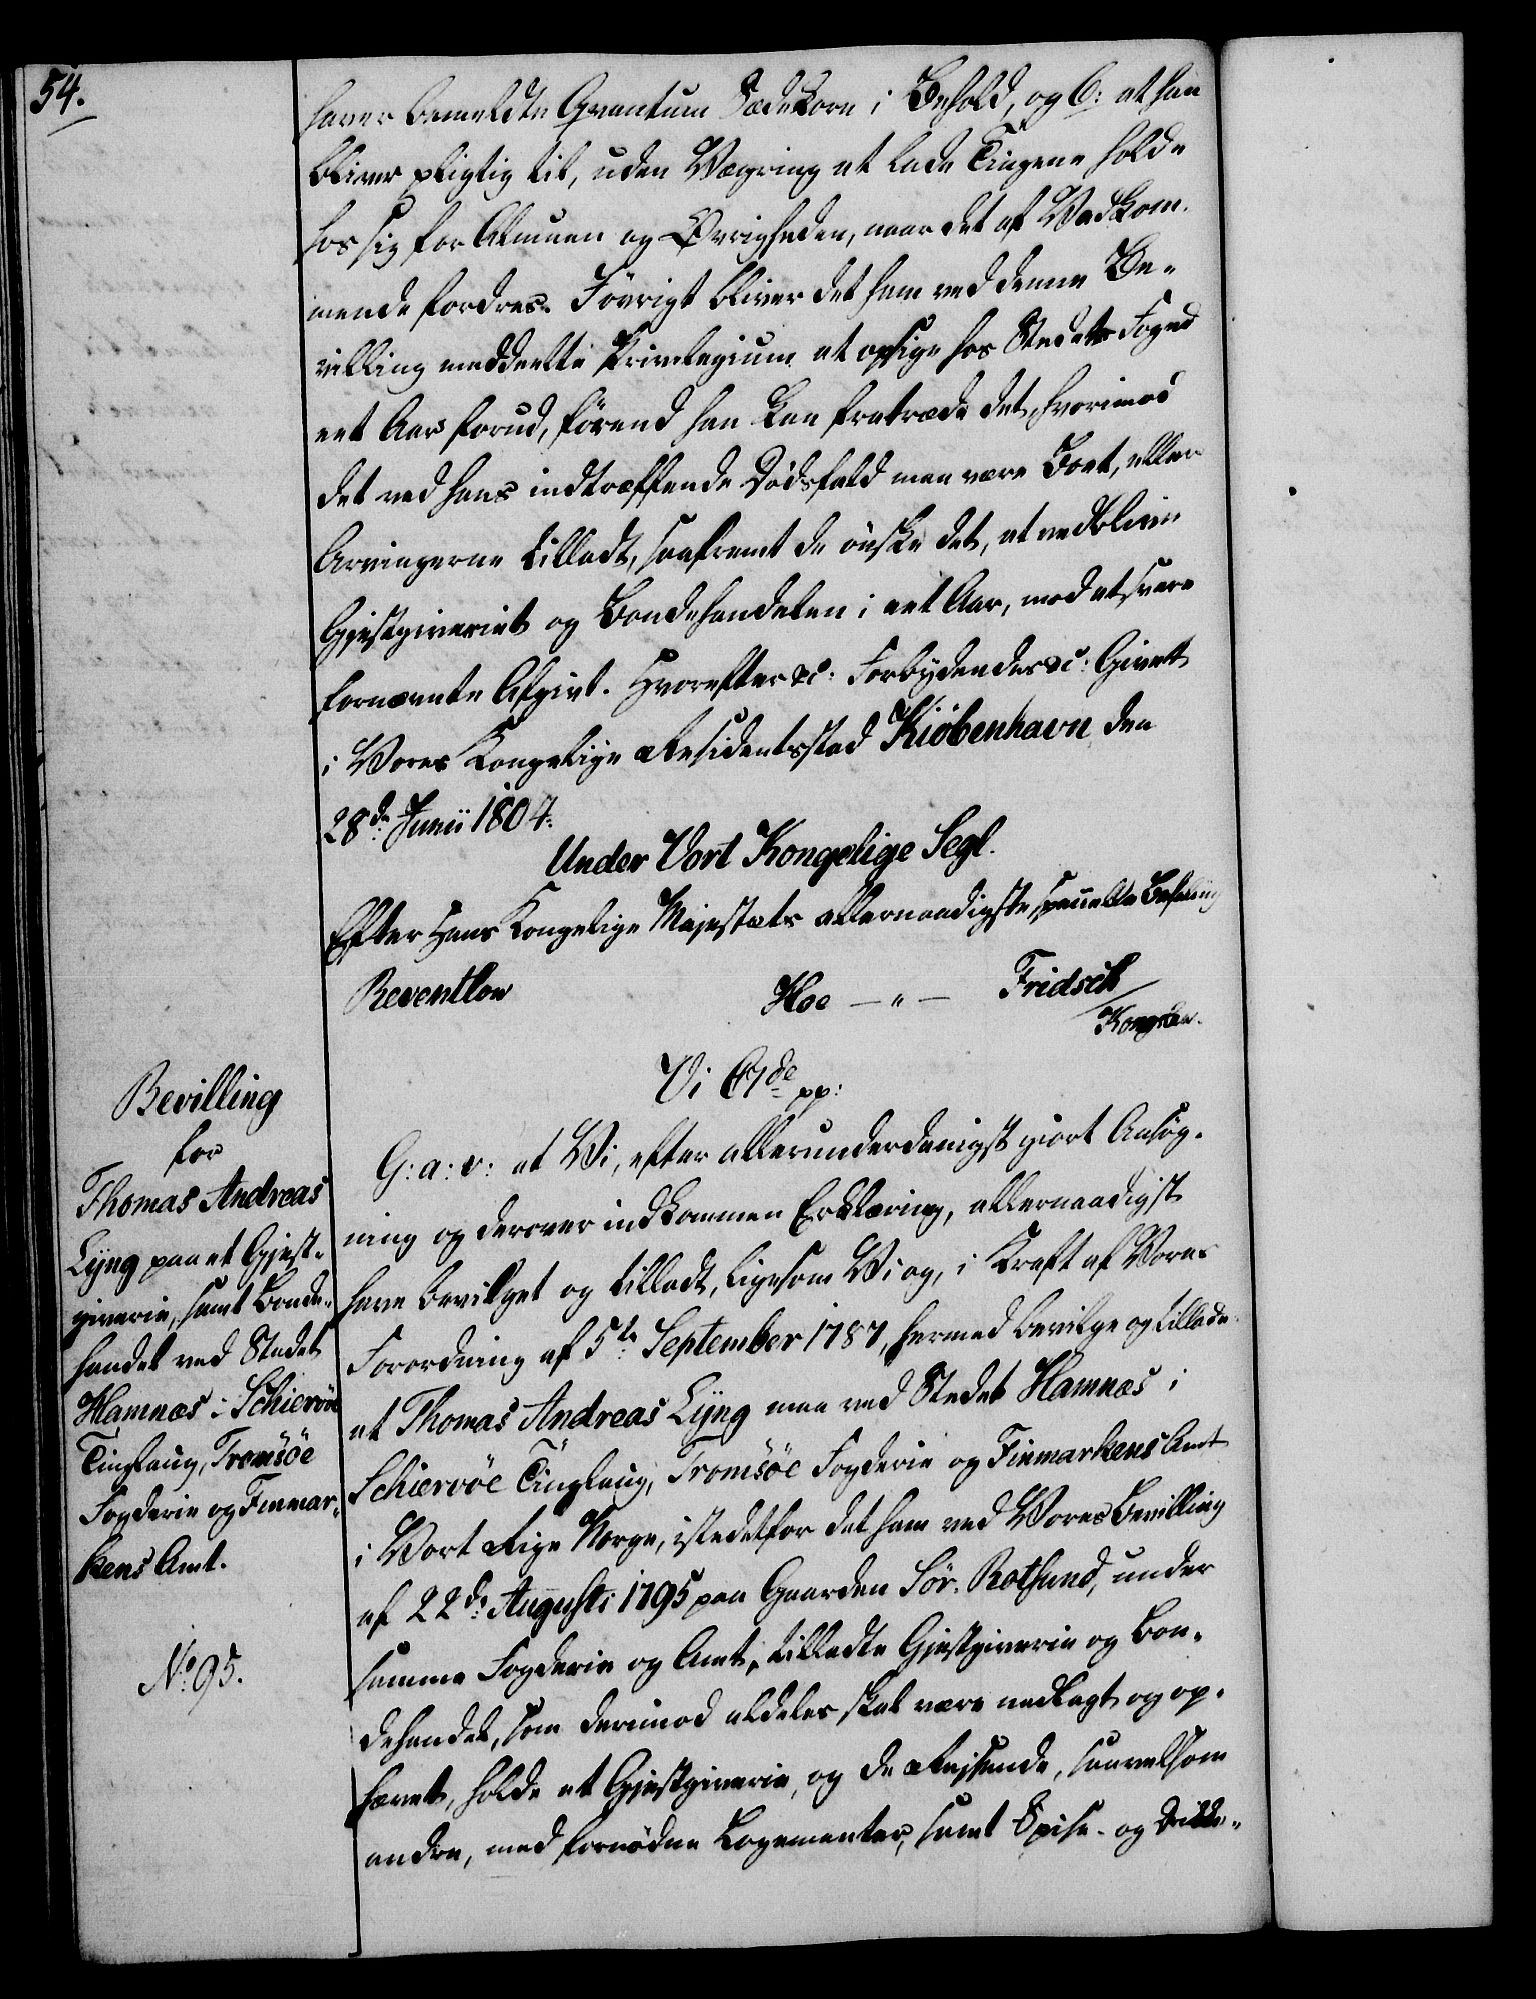 54.
haver bemeldte Qvantum Sædekorn i Behold, og 6: at han
bliver pligtig til, uden Vægring at lade Tingene holde
hos sig for Almuen og Øvrigheden, naar det af Vedkom-
mende fordres. Iövrigt bliver det ham ved denne Be-
villing meddeelte Privilegium at opsige hos Stedets Foged
eet Aar forud, förend han kan fratræde det, hvorimod
det ved hans indtræffende Dödsfald maa være Boet, eller
Arvingerne tilladt, saafremt de önske det, at vedblive
Gjestgiveriet og Bondehandelen i eet Aar, mod at svare
fornævnte Afgivt. Hvorefter &c: Forbydendes &c: Givet
i Vores Kongelige Residentsstad Kiöbenhavn den
28de Junii 1804.
Under Vort Kongelige Segl.
Efter Hans Kongelige Majestæts allernaadigste specielle Befaling
Reventlow
Hoe — " — Fridsch
/Kongslew.
Bevilling
for
Thomas Andreas
Lyng paa et Gjest-
giverie, samt Bonde-
handel ved Stedet
Hamnæs i Schiervöe
Tinglaug, Tromsöe
Fogderie og Finmar-
kens Amt.
No 95.
Vi C 7de pp:
G: a: v: at Vi, efter allerunderdanigst giort Ansøg-
ning og derover indkommen Erklæring, allernaadigst
have bevilget og tilladt, ligesom Vi og, i Kraft af Vores
Forordning af 5te September 1787, hermed bevilge og tillade
at Thomas Andreas Lyng maa ved Stedet Hamnæs i
Schiervöe Tinglaug, Tromsöe Fogderie og Finmarkens Amt
i Vort Rige Norge, istedetfor det ham ved Vores Bevilling
af 22de Augusti 1795 paa Gaarden Sör-Rotsund, under
samme Fogderie og Amt, tilladte Gjestgiverie og Bon-
dehandel, som derimod aldeles skal være nedlagt og op-
hævet, holde et Gjestgiverie, og de Rejsende, saavelsom
andre, med fornödne Logementer, samt Spise- og Drikke-